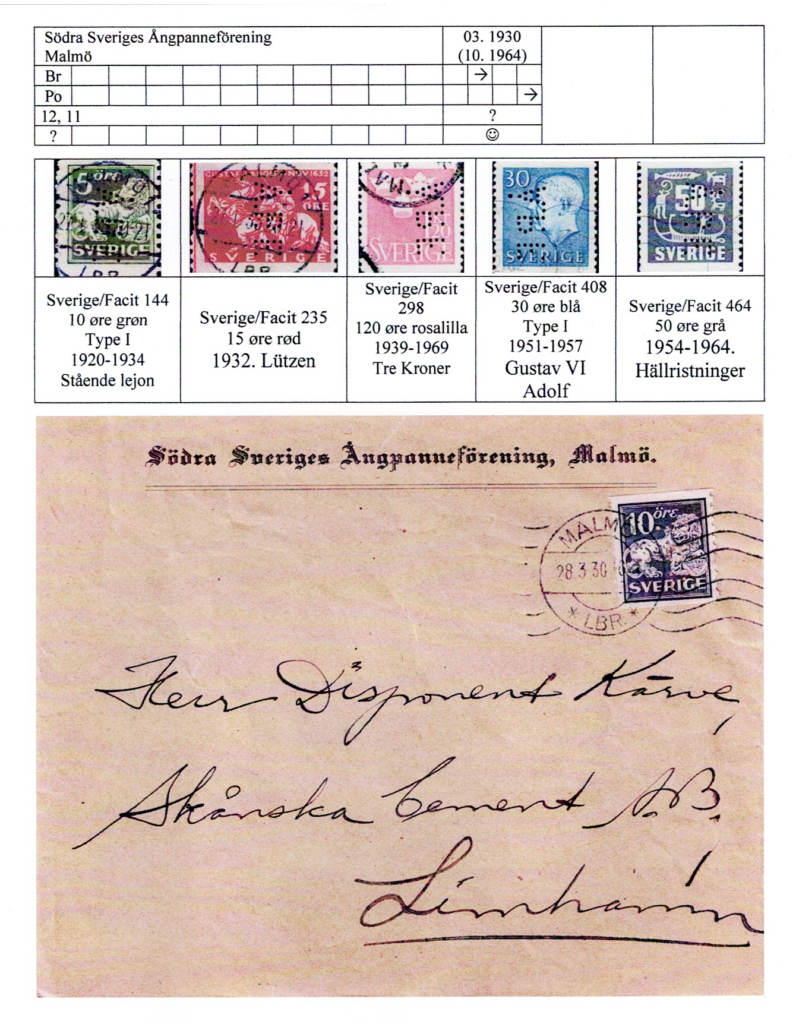 Södra Sveriges Ångpanneförening
Malmö
03. 1930
(10. 1964)
Br →
Po →
12, 11 ?
? ☺
5 öre
SVERIGE
LBR
15
ÖRE
SVERIGE
LBR
120
SVERIGE
30
SVERIGE
50
SVERIGE
Sverige/Facit 144
10 øre grøn
Type I
1920-1934
Stående lejon
Sverige/Facit 235
15 øre rød
1932. Lützen
Sverige/Facit
298
120 øre rosalilla
1939-1969
Tre Kroner
Sverige/Facit 408
30 øre blå
Type I
1951-1957
Gustav VI
Adolf
Sverige/Facit 464
50 øre grå
1954-1964.
Hällristninger
Södra Sveriges Ångpanneförening, Malmö.
10 öre
SVERIGE
MALMÖ
28.3.30
* LBR. *
Herr Disponent Kärve,
Skånska Cement A.B,
Limhamn